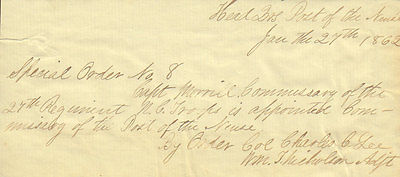 Head Qrs Post of the Neuse
Jan the 27th 1862
Special Order No 8
Capt Merrill Commissary of the
27th Regiment N.C. Troops is appointed Com-
missary of the Post of the Neuse
By Order Col Charles C Lee
Wm. J Nicholson Adjt